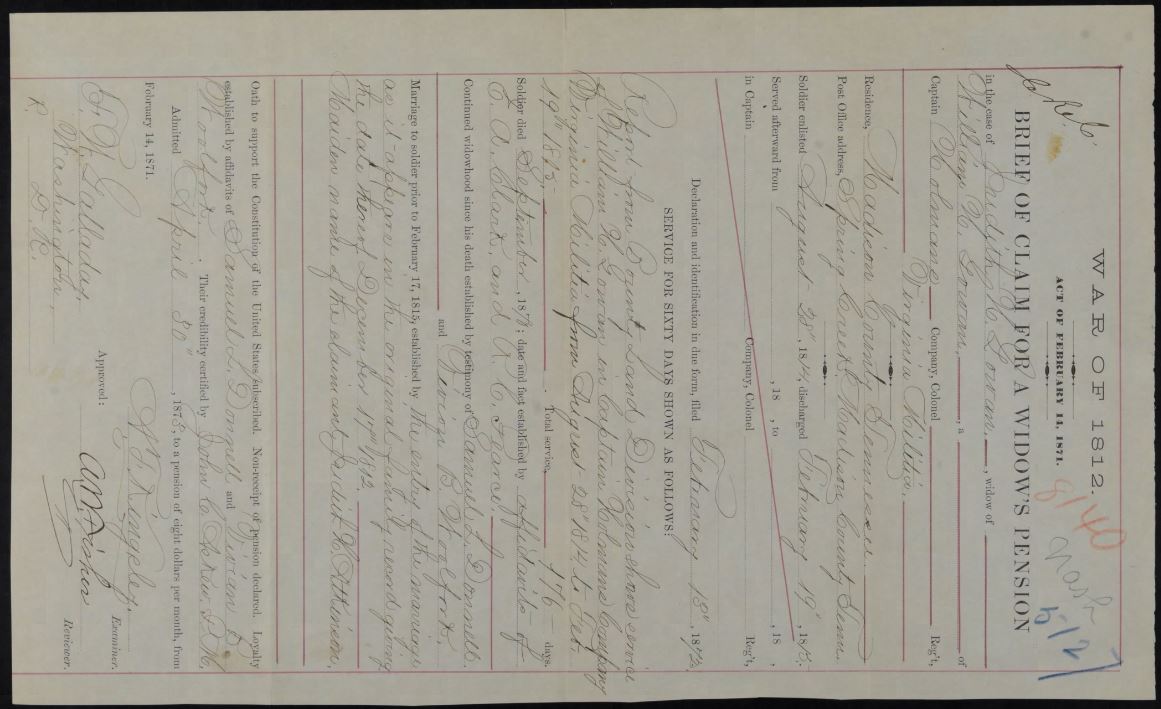 WAR OF 1812.
ACT OF FEBRUARY 14, 1871.
8140
5127
BRIEF OF CLAIM FOR A WIDOW'S PENSION
in the case of Judith H. Gowan, widow of
William H. Gowan, a of
Captain Holman's Company, Colonel Reg't,
Virginia Militia.
Residence, Madison County Tennessee.
Post Office address, Spring Creek Madison County Tenn.
Soldier enlisted August 28", 1814, discharged February 19", 1815.
Served afterward from , 18 , to , 18 ,
in Captain Company, Colonel Reg't,
Declaration and identification in due form, filed February 13", 1879.
SERVICE FOR SIXTY DAYS SHOWN AS FOLLOWS:
Report from Bounty Land Division shows service
of William H. Gowan in Captain Holmans Company
Virginia Militia from August 28" 1814 to Feb.
19th 1815. Total service, 176 days.
Soldier died September, 187 ; date and fact established by affidavits of
E. A. Clark, and A. C.
Continued widowhood since his death established by testimony of Samuel L. Donnell
and Vivion B. Woolfork.
Marriage to soldier prior to February 17, 1815, established by the entry of the marriage
as it appears in the original family record giving
the date thereof December 17th 1812.
Maiden name of the claimant Judith H.
Oath to support the Constitution of the United States subscribed. Non-receipt of pension declared. Loyalty
established by affidavits of Samuel L. Donnell and Vivian B.
Woolfork. Their credibility certified by John C. P.M.
Admitted April 30", 1879, to a pension of eight dollars per month, from
February 14, 1871.
Examiner.
Approved:
Washington,
D.C.
Reviewer.